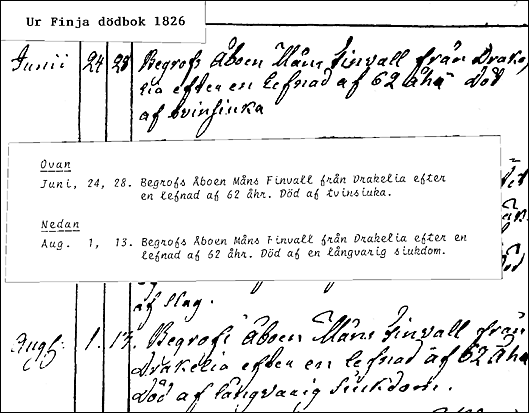 Ur Finja dödbok 1826
Junii 24 28 Begrofs Åboen Måns Finvall från Drake,
lia efter en lefnad af 62 åhr Död
af tvinsiuka
Ovan
Juni, 24, 28. Begrofs Åboen Måns Finvall från Drakelia efter
en lefnad af 62 åhr. Död af tvinsiuka.
Nedan
Aug. 1, 13. Begrofs Åboen Måns Finvall från Drakelia efter en
lefnad af 62 åhr. Död af en långvarig siukdom.
af slag.
Aug: 1. 13. Begrofs Åboen Måns Finvall från
Drakelia efter en lefnad af 62 åhr
Död af långvarig siukdom.